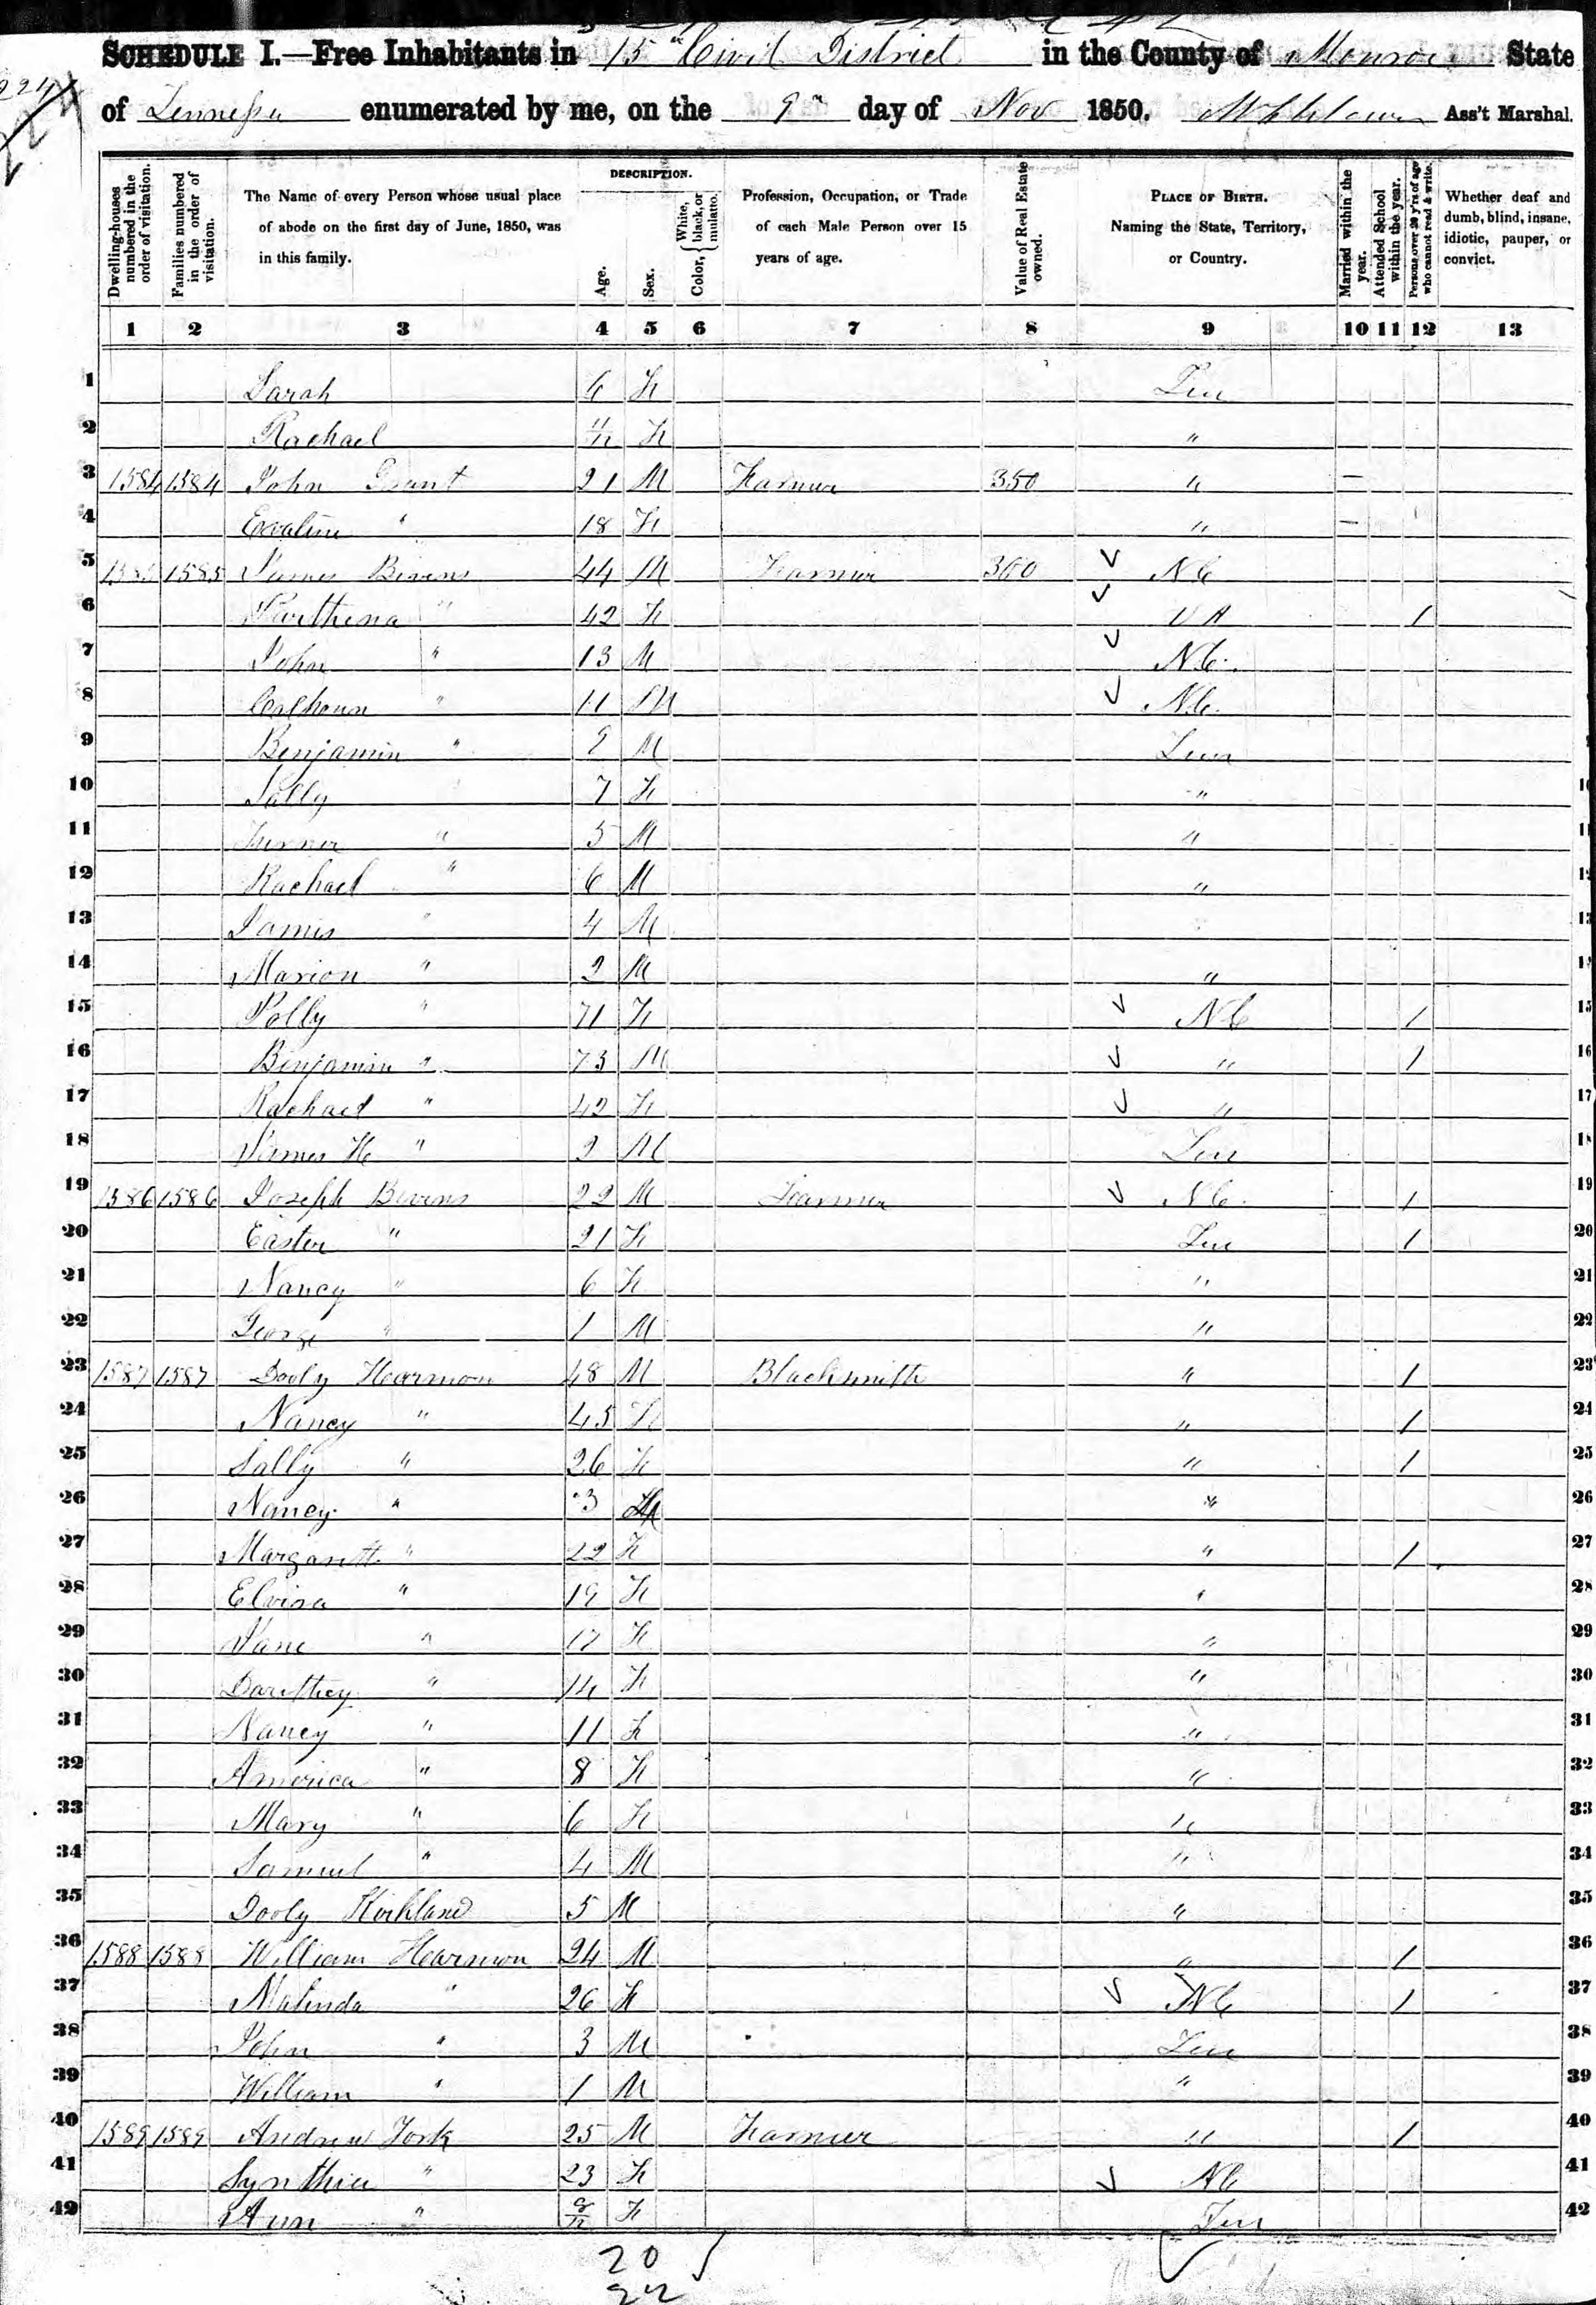 SCHEDULE I.—Free Inhabitants in 15" Civil District in the County of Monroe State
of Tennessee enumerated by me, on the 9" day of Nov 1850. Ass't Marshal.
Dwelling-houses numbered in the order of visitation.
Families numbered in the order of visitation.
The Name of every Person whose usual place of abode on the first day of June, 1850, was in this family.
DESCRIPTION.
Age.
Sex.
Color, { White, black, or mulatto.
Profession, Occupation, or Trade of each Male Person over 15 years of age.
Value of Real Estate owned.
PLACE OF BIRTH. Naming the State, Territory, or Country.
Married within the year.
Attended School within the year.
Persons over 20 y'rs of age who cannot read & write.
Whether deaf and dumb, blind, insane, idiotic, pauper, or convict.
1 2 3 4 5 6 7 8 9 10 11 12 13
1 Sarah 6 F Ten
2 Rachael 11/12 F "
3 1584 1584 John Grant 21 M Farmer 350 " –
4 Evaline " 18 F " –
5 1585 1585 James Bivens 44 M Farmer 300 NC
6 Parthena " 42 F VA / 
7 John " 13 M NC 
8 Calhoun " 11 M NC 
9 Benjamin " 9 M Ten
10 Sally 7 F " 10
11 Turner " 5 M " 11
12 Rachael " 6 M " 12
13 James " 4 M 13
14 Marion " 2 M " 14
15 Polly " 71 F NC / 15
16 Benjamin " 73 M " / 16
17 Rachael " 42 F " 17
18 James H " 2 M Ten 18
19 1586 1586 Joseph Bivens 22 M Farmer NC / 19
20 Easter " 21 F Ten / 20
21 Nancy " 6 F " 21
22 George " 1 M " 22
23 1587 1587 Dooly Hearmon 48 M Blacksmith " / 23
24 Nancy " 45 F " / 24
25 Sally " 26 F " / 25
26 Nancy " 3 " 26
27 Margarett " 22 F " / 27
28 Elvira " 19 F " 28
29 Jane " 17 F " 29
30 Darithey " 14 F " 30
31 Nancy " 11 F " 31
32 America " 8 F " 32
33 Mary " 6 F " 33
34 Samuel " 4 M " 34
35 Dooly Kirkland 5 M " 35
36 1588 1588 William Hearmon 24 M " / 36
37 Malinda " 26 F NC / 37
38 John " 3 M Ten 38
39 William " 1 M " 39
40 1589 1589 Andrew York 25 M Farmer " / 40
41 Synthia " 23 F NC 41
42 Ann " 8/12 F Ten 42
20
22